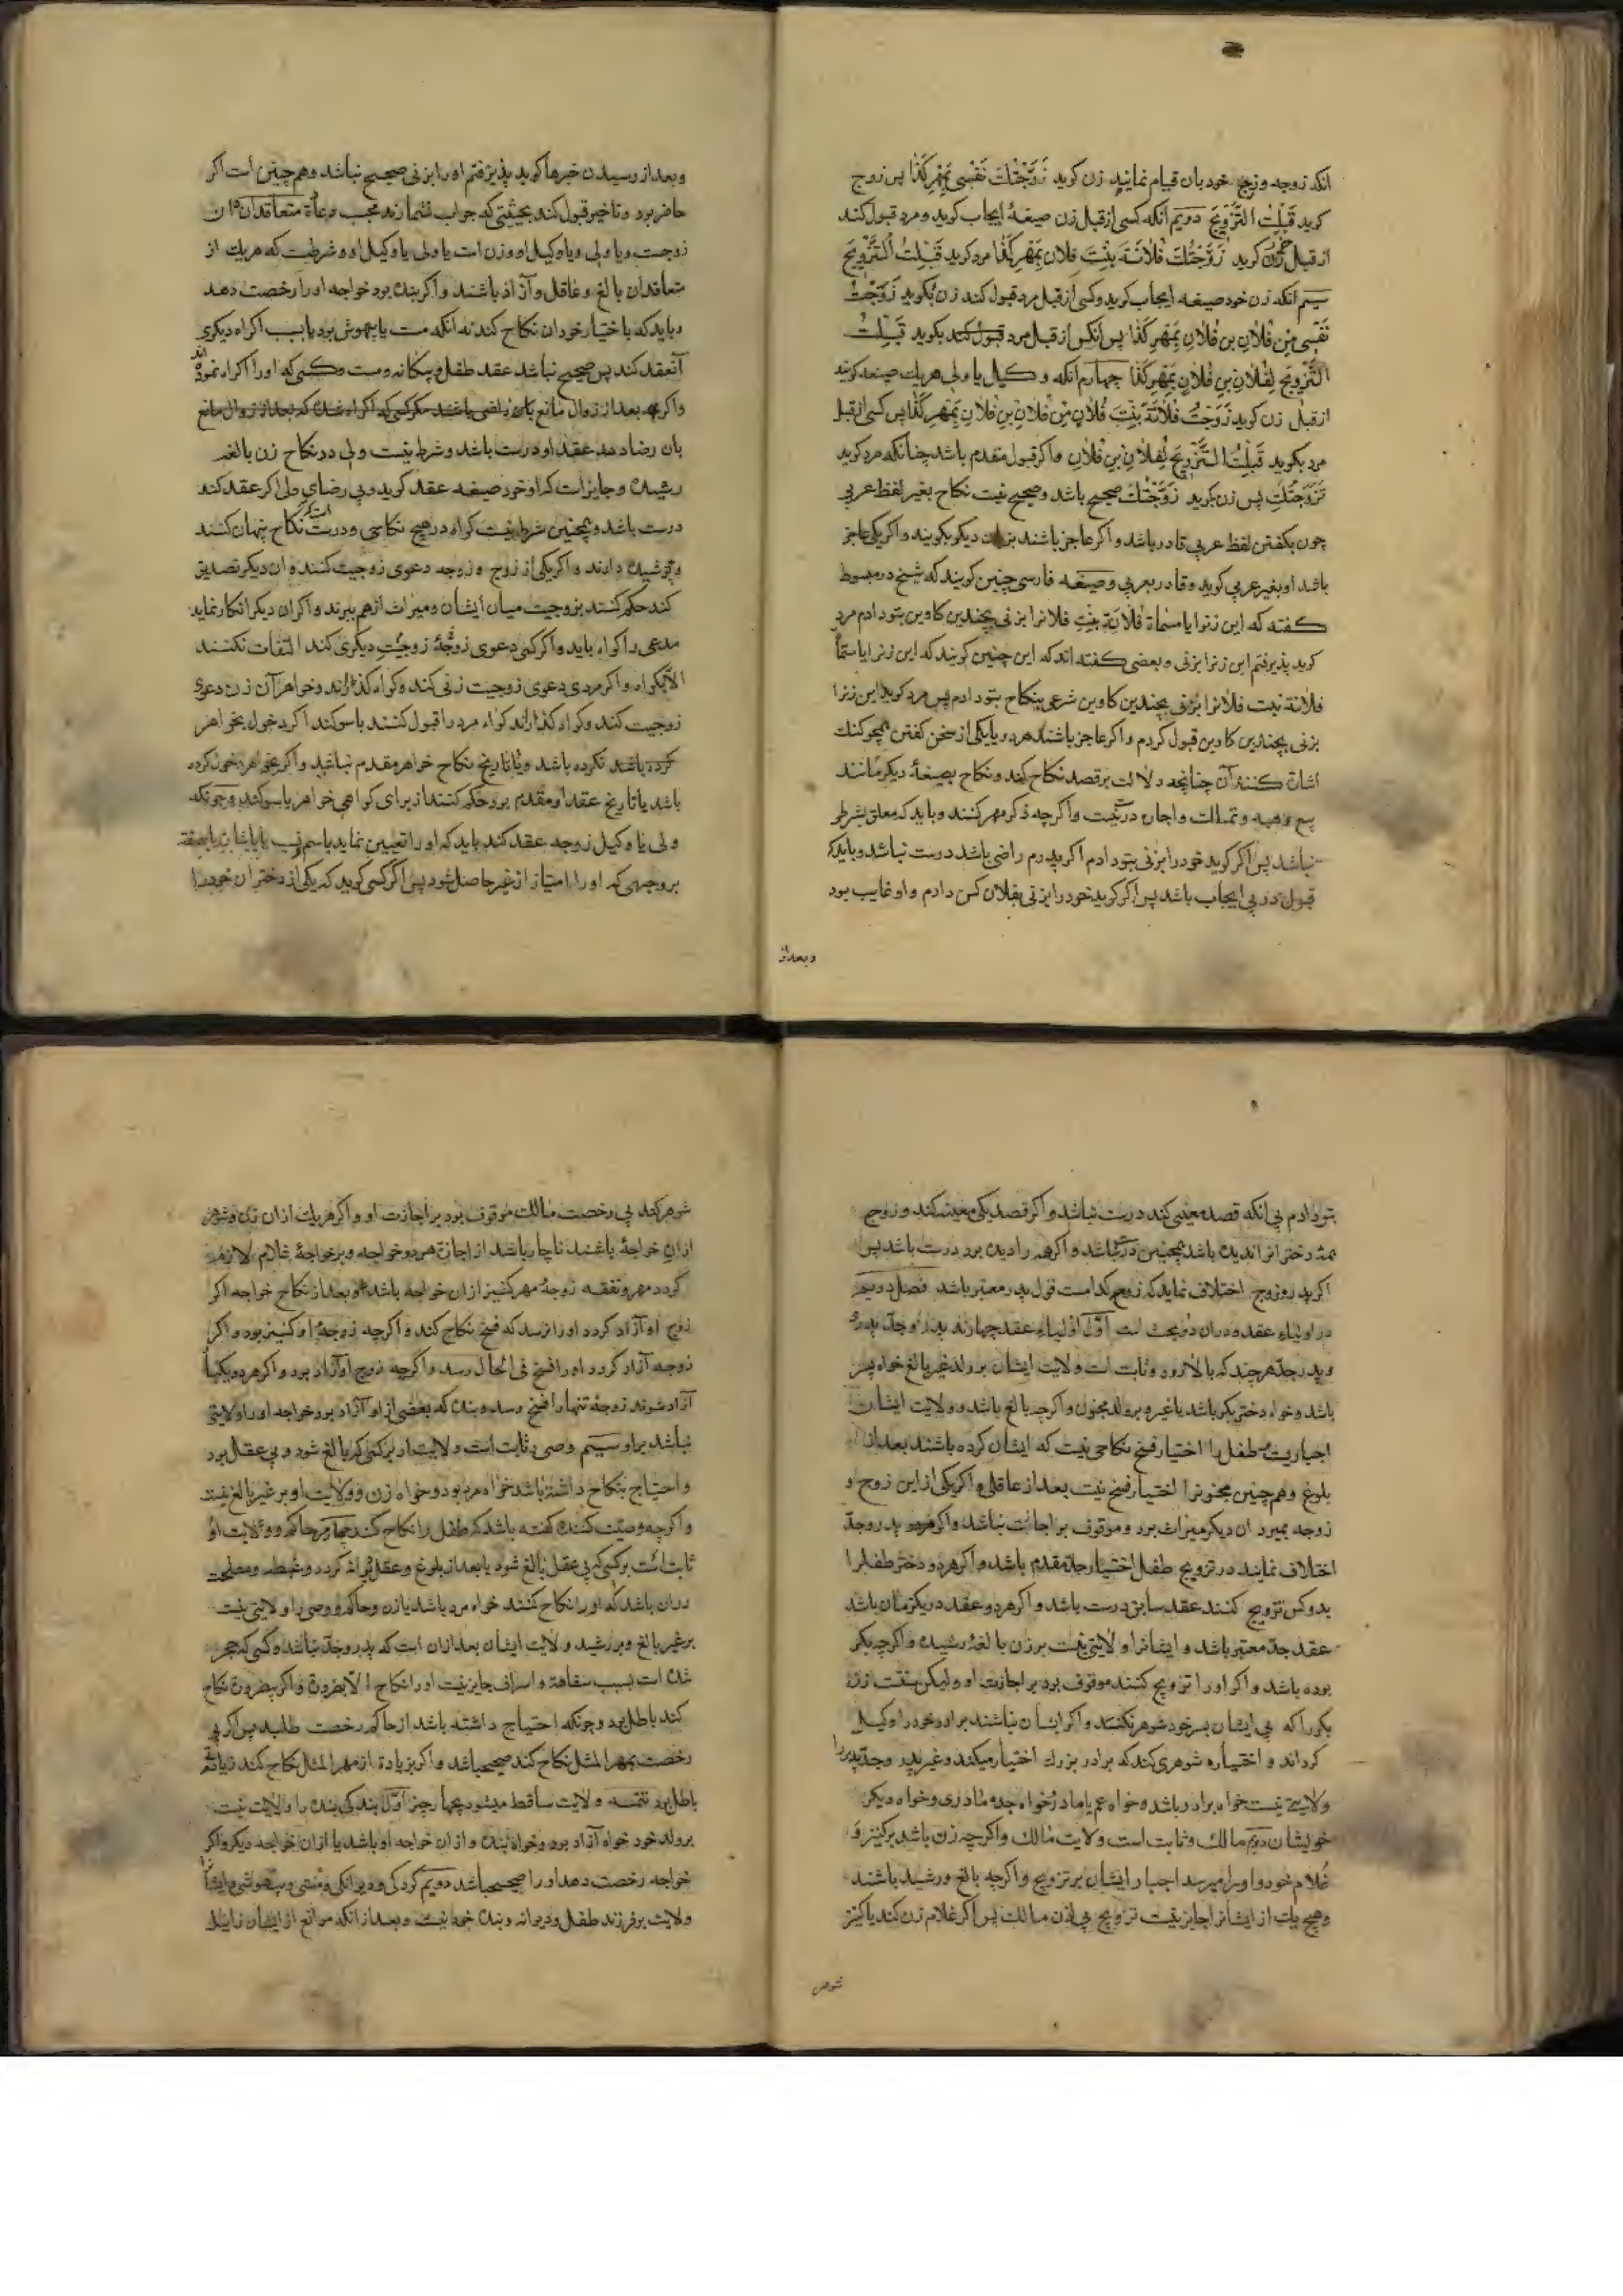 انکه زوجه و زوج خود بان قیام نمایند زن کوید زَوَّجْتُكَ نَفْسی بِمَهْرِ کَذا پس زوج
کوید قَبِلْتُ التَّزْویجَ دویم انکه کسی از قبل زن صیغهٔ ایجاب کوید و مرد قبول کند
از قبل زن کوید زَوَّجْتُكَ فُلانَةَ بِنْتَ فلان بِمَهْرِ کَذا مرد کوید قَبِلْتُ التَّزْویجَ
سیم انکه زن خود صیغه ایجاب کوید و کسی از قبل مرد قبول کند زن بکوید زَوَّجْتُ
نَفْسی مِنْ فُلانِ بن فُلانٍ بِمَهْرِ کَذا پس انکس از قبل مرد قبول کند بکوید قَبِلْتُ
التَّزْویجَ لِفُلانِ بنِ فُلانٍ بِمَهْرِ کَذا چهارم انکه وکیل یا ولی هریك صیغه کویند
از قبل زن کوید زَوَّجْتُ فُلانَةَ بِنْتَ فُلانٍ مِنْ فُلانِ بنِ فُلانٍ بِمَهْرِ کَذا پس کسی از قبل
مرد بکوید قَبِلْتُ التَّزْویجَ لِفُلانِ بنِ فُلانٍ و اکر قبول مقدم باشد چنانکه مرد کوید
تَزَوَّجْتُكِ پس زن بکوید زَوَّجْتُكَ صحیح باشد و صحیح نیست نکاح بغیر لفظ عربی
چون بکفتن لفظ عربی قادر باشد و اکر عاجز باشند بزبان دیکر بکویند و اکر یکی عاجز
باشد او بغیر عربی کوید و قادر بعربی و صیغه فارسی چنین کویند که شیخ در مبسوط
کفته که این زنرا یا مسماة فُلانَة بِنْتِ فلانرا بزنی بچندین کاوین بتو دادم مرد
کوید پذیرفتم این زنرا بزنی و بعضی کفته اند که این چنین کویند که این زنرا یا مسماة
فلانة بنت فلانرا بزنی بچندین کاوین شرعی بنکاح بتو دادم پس مرد کوید این زنرا
بزنی بچندین کاوین قبول کردم و اکر عاجز باشند هردو یا یکی از سخن کفتن همچو کنك
اشارت کنند آن چنانچه دلالت بر قصد نکاح کند و نکاح بصیغهٔ دیکر مانند
بیع و هبه و تملیك و اجاره درست نیست و اکرچه ذکر مهر کنند و باید که معلق بشرطی
نباشد پس اکر کوید خود را بزنی بتو دادم اکر پدرم راضی باشد درست نباشد و باید که
قبول در پی ایجاب باشد پس اکر کوید خود را بزنی بفلان کس دادم و او غایب بود
و بعد از
و بعد از رسیدن خبر ها کوید پذیرفتم او را بزنی صحیح نباشد و هم چنین است اکر
حاضر بود و تاخیر قبول کند بحیثیتی که جواب نشمارند
زوجست و یا ولی و یا وکیل او و زن است یا ولی یا وکیل او و شرطست که هریك از
متعاقدان بالغ و عاقل و آزاد باشند و اکر بنده بود خواجه او را رخصت دهد
و باید که باختیار خودان نکاح کند نه انکه مست یا بیهوش بود یا بسبب اکراه دیکری
آنعقد کند پس صحیح نباشد عقد طفل و دیوانه و مست و کسی که او را اکراه نموده اند
و اکرچه بعد از زوال مانع بان راضی باشند مکر کسی که اکراه شده که بعد از زوال مانع
بان رضا دهد عقد او درست باشد و شرط نیست ولی در نکاح زن بالغه
رشیده و جایز است که او خود صیغه عقد کوید و بی رضای ولی اکر عقد کند
درست باشد و همچنین شرط نیست کواه در هیچ نکاحی و درست است اکر نکاح پنهان کنند
و پوشیده دارند و اکر یکی از زوج و زوجه دعوی زوجیت کنند و ان دیکر تصدیق
کند حکم کنند بزوجیت میان ایشان و میراث از هم ببرند و اکر ان دیکر انکار نماید
مدعی را کواه باید و اکر کسی دعوی زوجهٔ زوجیّت دیکری کند التفات نکنند
الا بکواه و اکر مردی دعوی زوجیت زنی کند و کواه کذراند و خواهر آن زن دعوی
زوجیت کند و کواه کذراند کواه مرد را قبول کنند با سوکند اکر دخول بخواهر
کرده باشد نکرده باشد و یا تاریخ نکاح خواهر مقدم نباشد و اکر بخواهر دخول کرده
باشد یا تاریخ عقد او مقدم بود حکم کنند از برای کواهی خواهر با سوکند و چونکه
ولی یا وکیل زوجه عقد کند باید که او را تعیین نماید باسم و نسب یا باشارت یا بصفت
بر وجهی که او را امتیاز از غیر حاصل شود پس اکر کسی کوید که یکی از دختران خود را
بتو دادم بی انکه قصد معینی کند درست نباشد و اکر قصد یکی معین کند و زوج
همهٔ دخترانرا ندیده باشد همچنین درست نباشد و اکر همه را دیده بود درست باشد پس
اکر پدر و زوج اختلاف نماید که زوجه کدامست قول پدر معتبر باشد فصل دویم
در اولیاء عقد و در ان دو بحث است اوّل اولیاء عقد چهارند پدر و جدّ پدری
و پدر جدّ هرچند که بالا رود و ثابت است ولایت ایشان بر ولد غیر بالغ خواه پسر
باشد و خواه دختر بکر باشد یا غیر و بر ولد مجنون و اکرچه بالغ باشد و ولایت ایشان
اجباریست پس طفل را اختیار فسخ نکاحی نیست که ایشان کرده باشند بعد از
بلوغ و هم چنین مجنونرا اختیار فسخ نیست بعد از عاقلی و اکر یکی از این زوج و
زوجه بمیرد ان دیکر میراث برد و موقوف بر اجازت نباشد و اکر پدر و جدّ
اختلاف نمایند در تزویج طفل اختیار جدّ مقدم باشد و اکر هردو دختر طفلرا
بدو کس تزویج کنند عقد سابق درست باشد و اکر هردو عقد در یکزمان باشد
عقد جدّ معتبر باشد و ایشانرا ولایتی نیست بر زن بالغهٔ رشیده و اکرچه بکر
بوده باشد و اکر او را تزویج کنند موقوف بود بر اجازت او و لیکن سنّت زن
بکر را که بی ایشان بسر خود شوهر نکند و اکر ایشان نباشند برادر خود را وکیل
کرداند و اختیاره شوهری کند که برادر بزرك اختیار میکند و غیر پدر و جدّ پدری را
ولایتی نیست خواه برادر باشد و خواه عم یا مادر و خواه جده مادری و خواه دیکر
خویشان دویم مالك و ثابت است ولایت مالك و اکرچه زن باشد بر کنیز و
غلام خود و او را میرسد اجبار ایشان بر تزویج و اکرچه بالغ و رشید باشند
و هیچ یك از ایشانرا جایز نیست تزویج بی اذن مالك پس اکر غلام زن کند یا کنیز
شوهر
شوهر کند بی رخصت مالك موقوف بود بر اجازت او و اکر هریك از ان زن و شوهر
از ان خواجهٔ باشند ناچار باشد از اجازة هردو خواجه و بر خواجهٔ غلام لازم
کردد مهر و نفقه زوجهٔ مهر کنیز از ان خواجه باشد و بعد از نکاح خواجه اکر
زوج او آزاد کردد او را نرسد که فسخ نکاح کند و اکرچه زوجهٔ او کنیز بود و اکر
زوجه آزاد کردد او را فسخ فی الحال رسد و اکرچه زوج او آزاد بود و اکر هردو یکبار
آزاد شوند زوجهٔ تنها را فسخ رسد و بنده که بعضی از او آزاد بود خواجه او را ولایتی
نباشد بر او سیّم وصی و ثابت است ولایت او بر کسی که بالغ شود و بی عقل بود
و احتیاج بنکاح داشته باشد خواه مرد بود و خواه زن و ولایت او بر غیر بالغ نیست
و اکرچه وصیّت کننده کفته باشد که طفل را نکاح کند چهارم حاکم و ولایت او
ثابت است بر کسی که بی عقل بالغ شود یا بعد از بلوغ و عقل دیوانه کردد و غبطه و مصلحت
در ان باشد که او را نکاح کنند خواه مرد باشد یا زن و حاکم و وصی را ولایتی نیست
بر غیر بالغ و بر رشید و ولایت ایشان بعد از ان است که پدر و جدّ نباشد و کسی که حجر
شده است بسبب سفاهة و اسراف جایز نیست او را نکاح الا بضرورة و اکر بیضرورة نکاح
کند باطل بود و چونکه احتیاج داشته باشد از حاکم رخصت طلبد پس اکر بی
رخصت بمهر المثل نکاح کند صحیح باشد و اکر بزیادة از مهر المثل نکاح کند زیادتی
باطل بود تتمه ولایت ساقط میشود بچهار چیز اوّل بندکی بنده را ولایت نیست
بر ولد خود خواه آزاد بود و خواه بنده و از ان خواجه او باشد یا از ان خواجه دیکر و اکر
خواجه رخصت دهد او را صحیح باشد دویم کودکی و دیوانکی و مستی و بیهوشی و ایشانرا
ولایت بر فرزند طفل و دیوانه و بنده خود نیست و بعد از انکه موانع از ایشان زایل